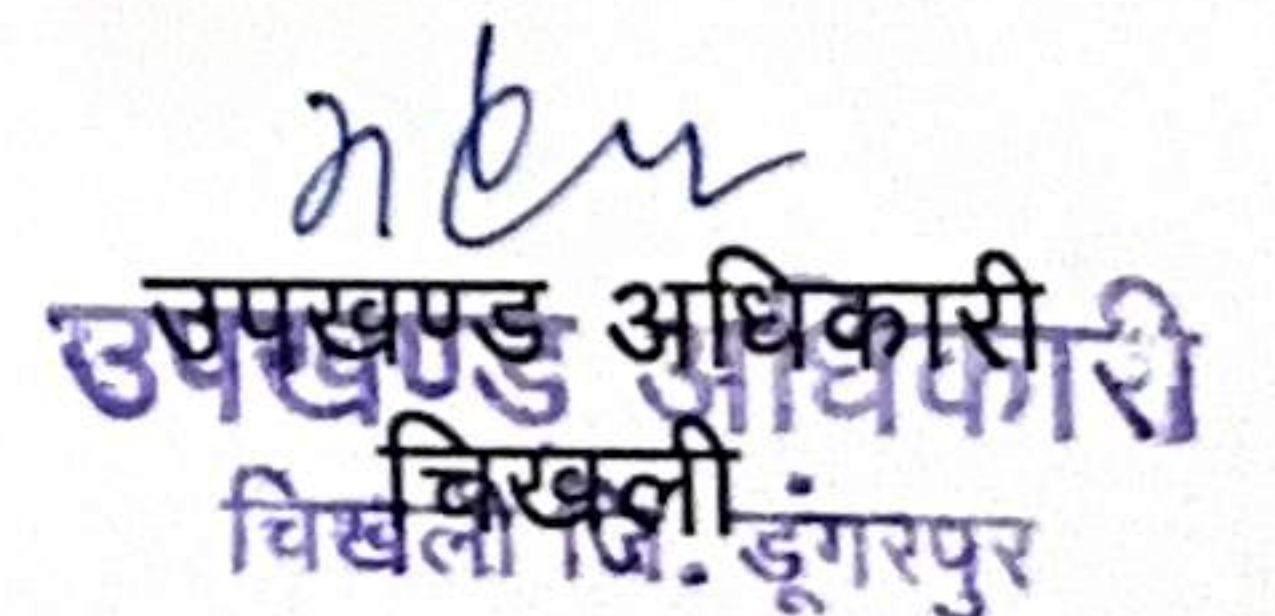 उपखण्ड अधिकारी
उपखण्ड अधिकारी
चिखली
चिखली जि. डूंगरपुर